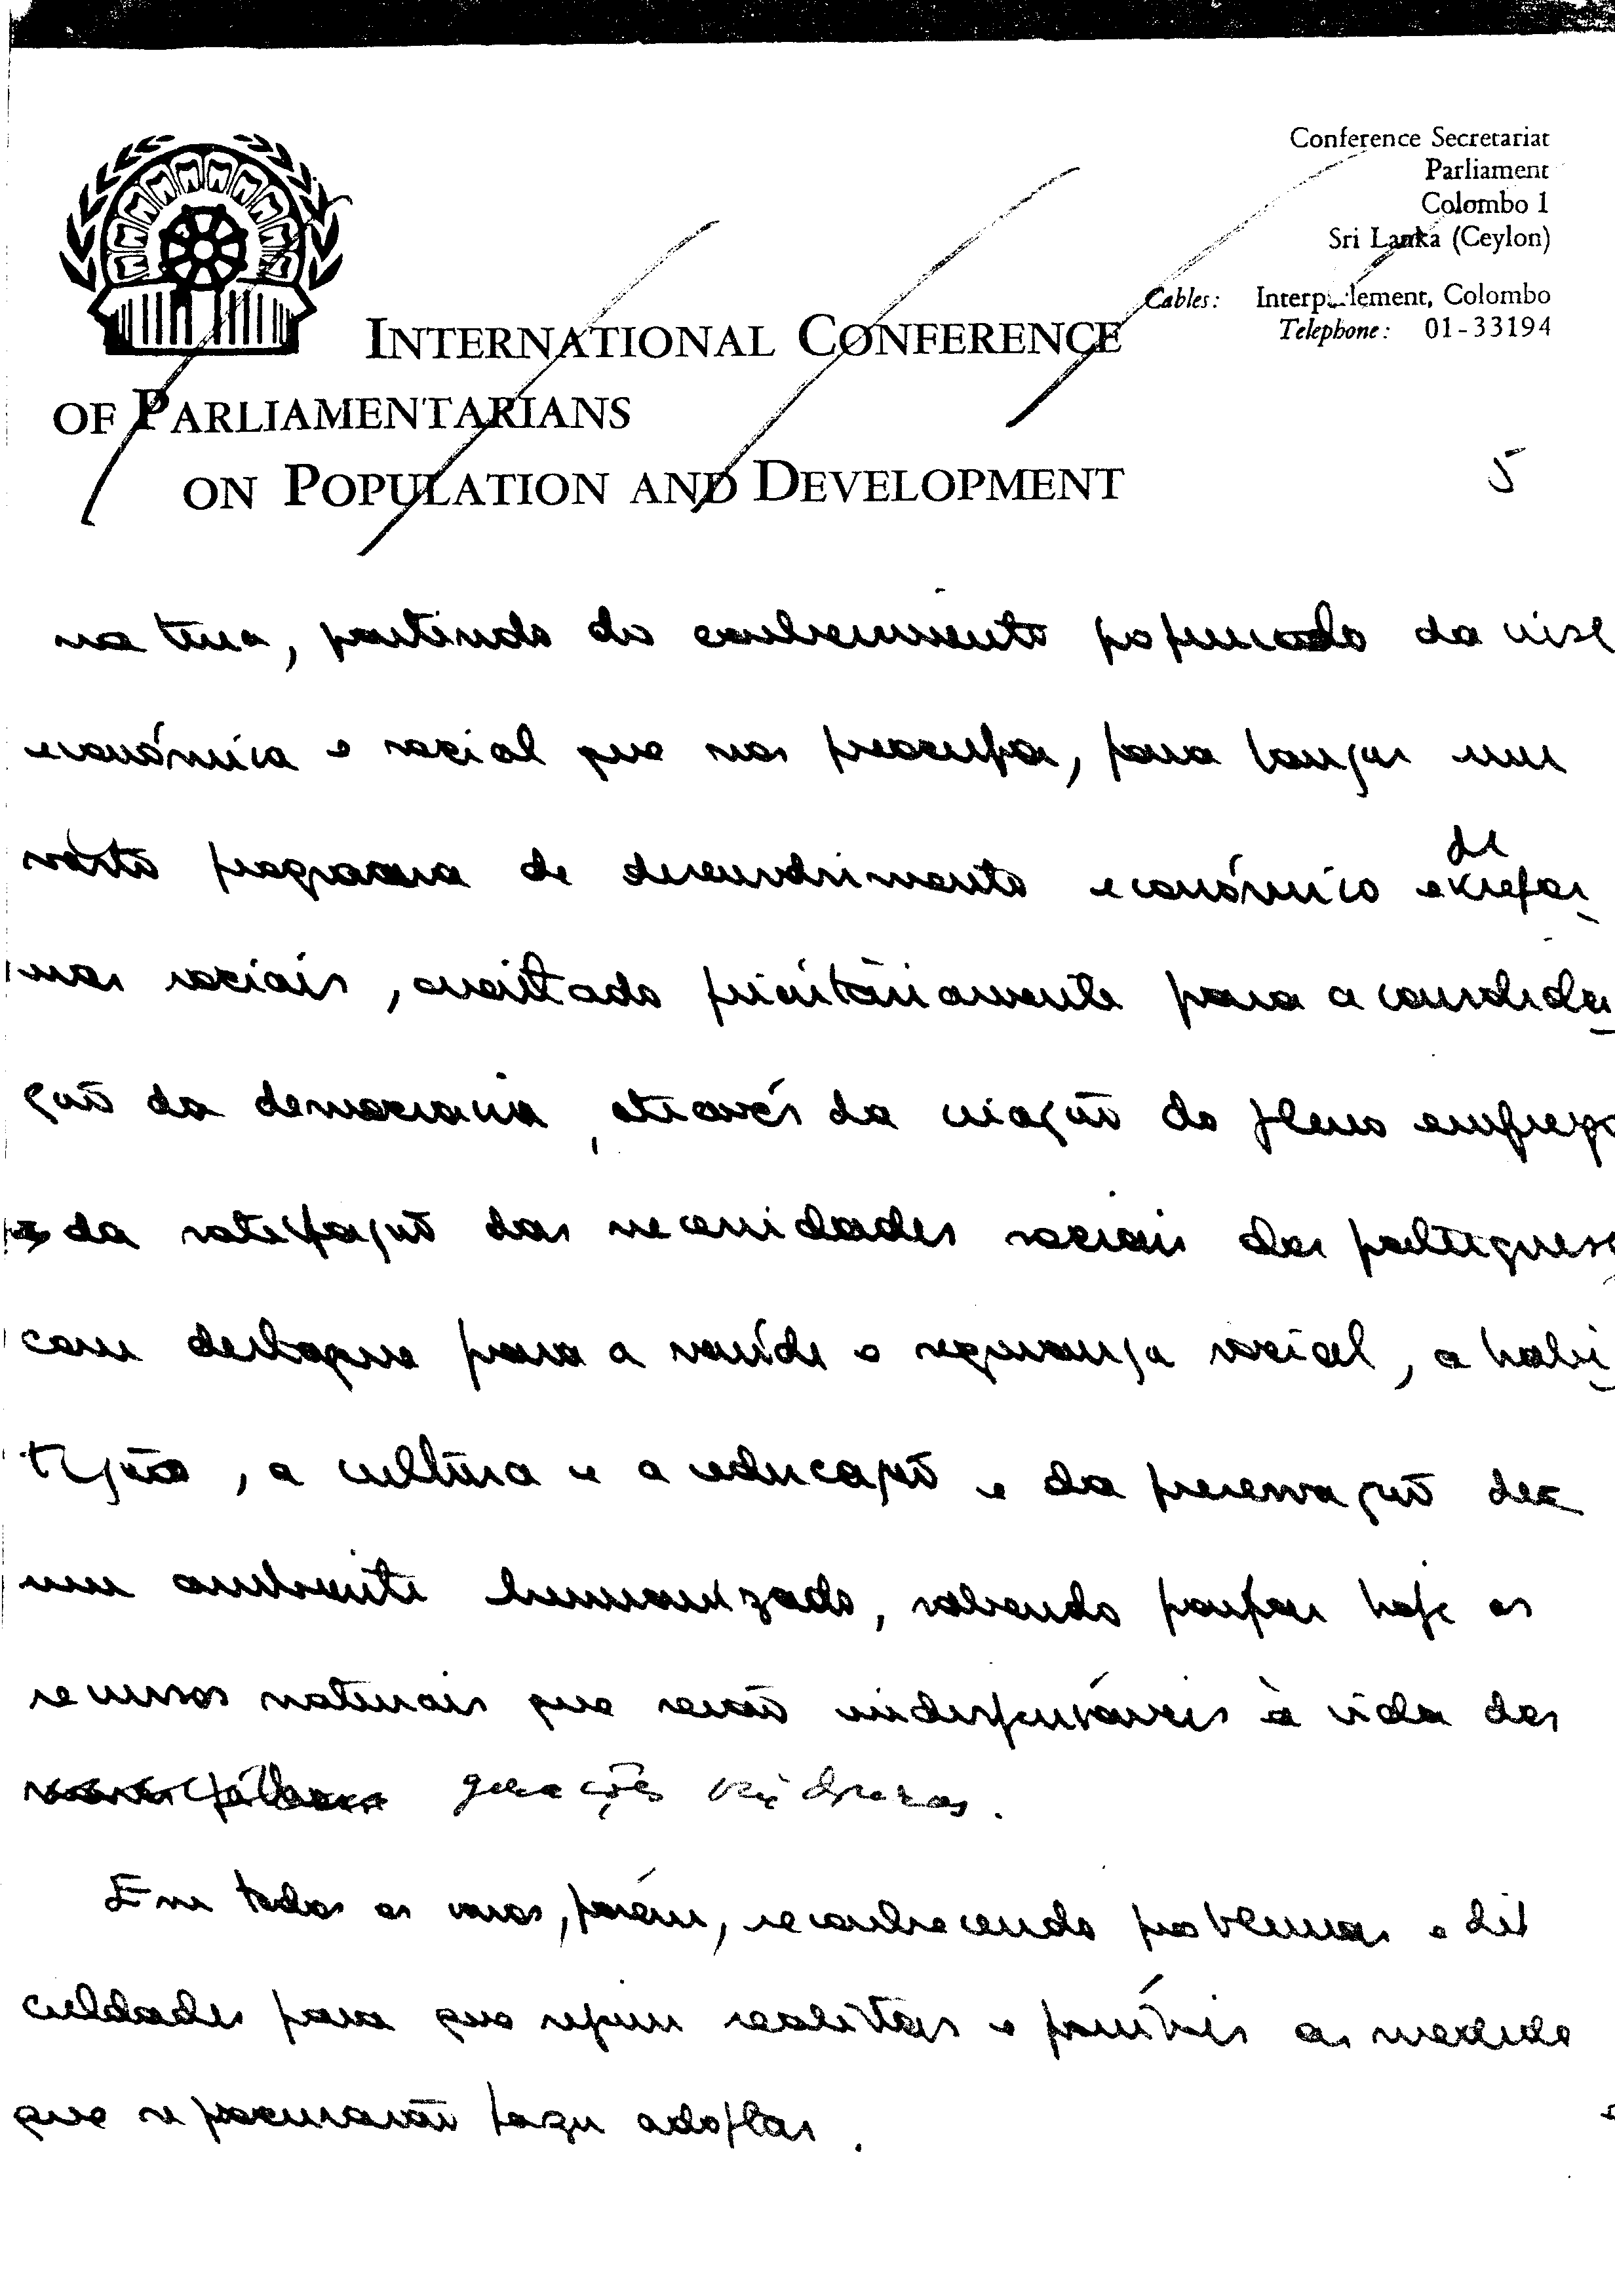 Conference Secretariat
Parliament
Colombo 1
Sri Lanka (Ceylon)
Cables: Colombo
Telephone: 01-33194
INTERNATIONAL CONFERENCE
OF PARLIAMENTARIANS
ON POPULATION AND DEVELOPMENT
5
partindo do conhecimento da
económica e social que nos preocupa, para lançar um
vasto programa de desenvolvimento económico e de refor
mas sociais, prioritàriamente para a consolida
ção da democracia, através da criação do pleno emprego
da satisfação das necessidades sociais dos portugueses
com destaque para a saúde e segurança social, a habi
tação, a cultura e a educação e da preservação de
um ambiente humanizado, sabendo poupar hoje os
recursos naturais que serão indispensáveis à vida das
gerações vindouras.
Em todos os casos, porém, reconhecendo problemas e difi
culdades para que sejam realistas e possíveis as medidas
que se procurarão fazer adoptar.